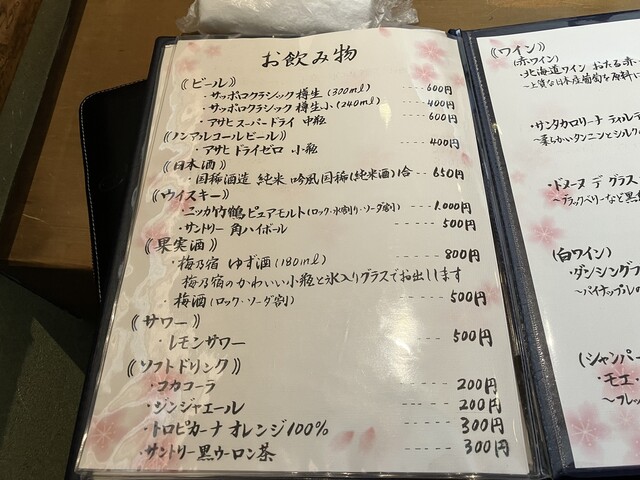 お飲み物
《ビール》
・サッポロクラシック樽生(300ml) ---- 600円
・サッポロクラシック樽生小(240ml) ---- 400円
・アサヒスーパードライ 中瓶 ---- 600円
《ノンアルコールビール》
・アサヒドライゼロ 小瓶 ---- 400円
《日本酒》
・国稀酒造 純米 吟風国稀(純米酒)1合 -- 650円
《ウイスキー》
・ニッカ竹鶴ピュアモルト(ロック・水割り・ソーダ割) --- 1,000円
・サントリー 角ハイボール ---- 500円
《果実酒》
・梅乃宿 ゆず酒(180ml) ---- 800円
梅乃宿のかわいい小瓶と氷入りグラスでお出しします
・梅酒(ロック・ソーダ割) ---- 500円
《サワー》
・レモンサワー ---- 500円
《ソフトドリンク》
・コカコーラ ---- 200円
・ジンジャエール ---- 200円
・トロピカーナ オレンジ100% ---- 300円
・サントリー黒ウーロン茶 ---- 300円
《ワイン》
(赤ワイン)
・北海道ワイン おたる赤
～上質な日本産葡萄を原料
・サンタカロリーナ
～柔らかいタンニンとシルク
・ドメーヌ デ グラス
～ブラックベリーなど黒
(白ワイン)
・ダンシング
～パイナップルの
(シャンパー
・モエ・
～フレッ